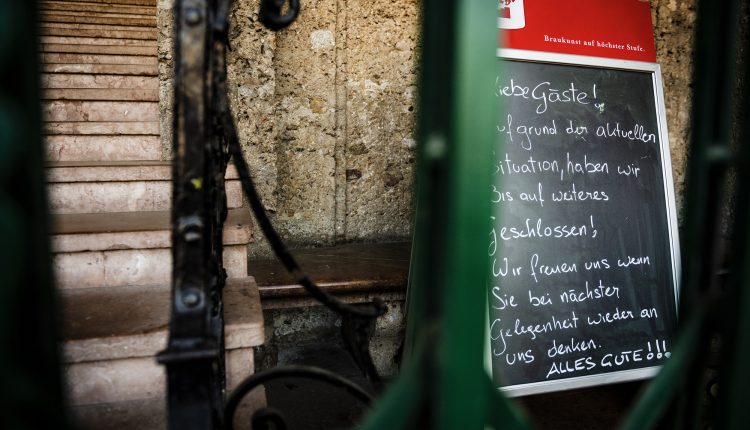 Braukunst auf höchster Stufe.
Liebe Gäste!
Aufgrund der aktuellen
Situation, haben wir
Bis auf weiteres
Geschlossen!
Wir freuen uns wenn
Sie bei nächster
Gelegenheit wieder an
uns denken.
ALLES GUTE!!!